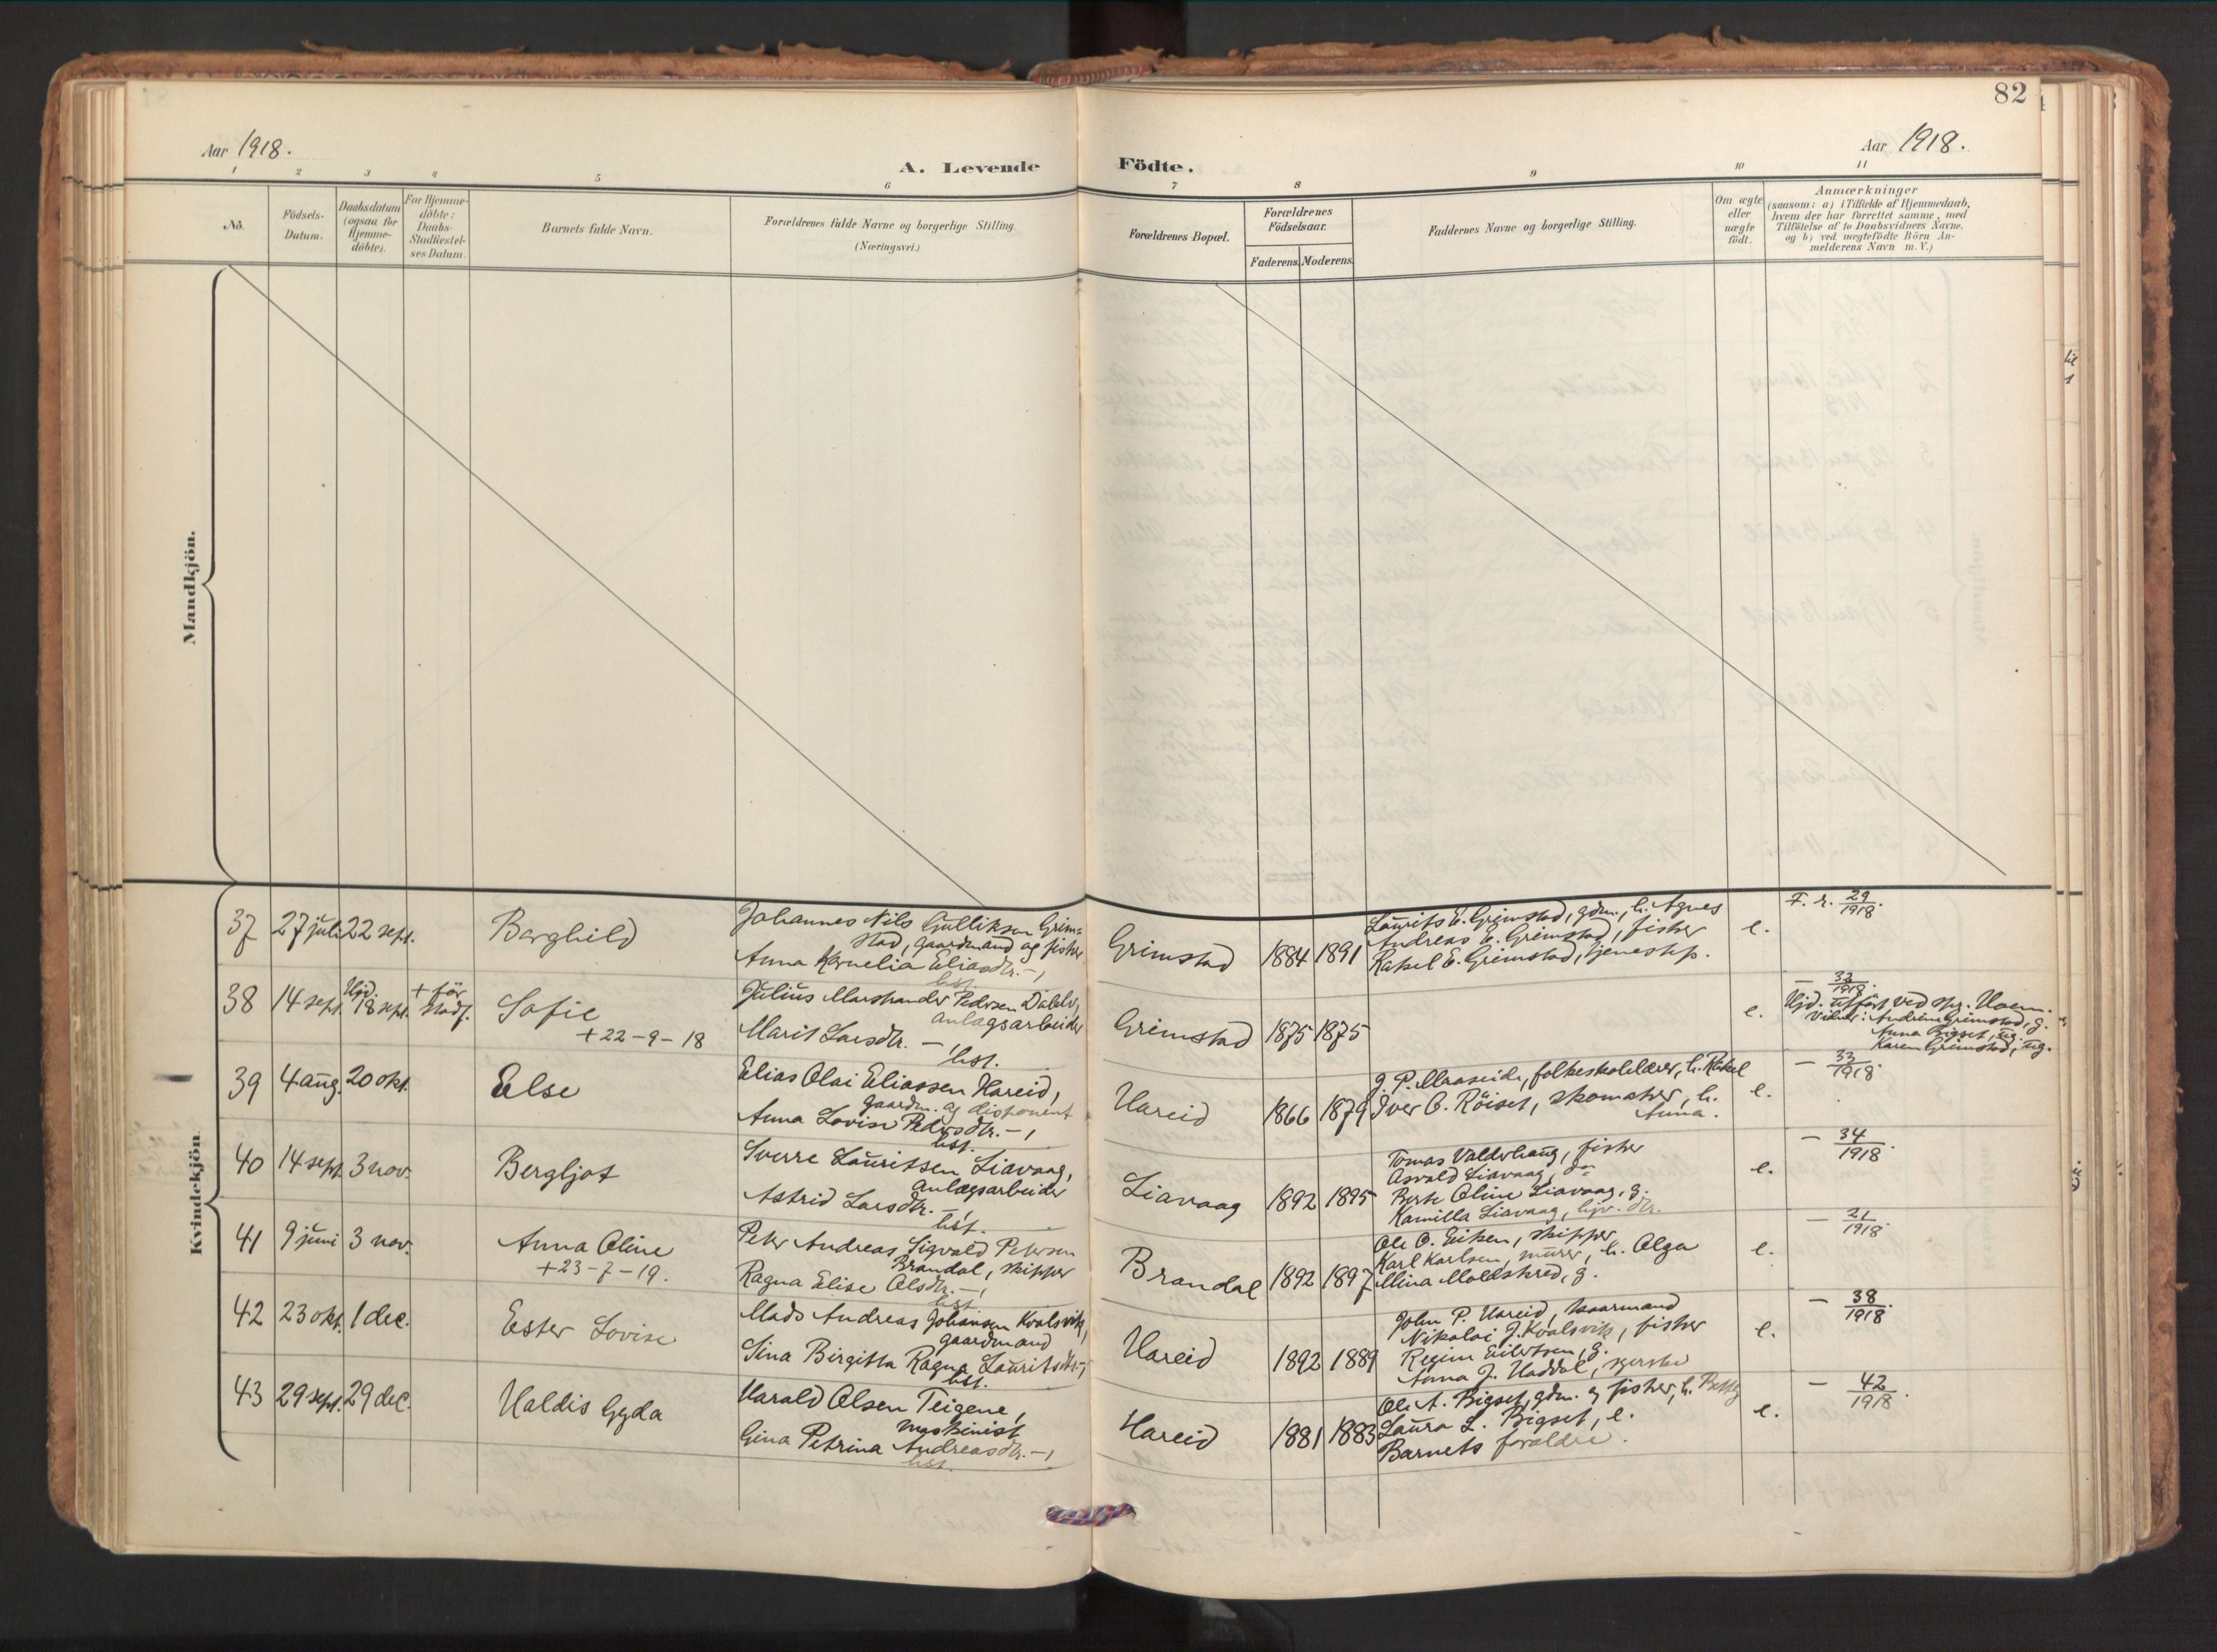 82
Aar 1918.
Aar 1918.
A. Levende Födte.
1 2 3 4 5 6 7 8 9 10 11
No.
Födsels-
Datum.
Daabsdatum
(ogsaa for
Hjemme-
döbte).
For Hjemme-
döbte:
Daabs-
Stadfæstel-
ses Datum.
Barnets fulde Navn.
Forældrenes fulde Navne og borgerlige Stilling.
(Næringsvei.)
Forældrenes Bopæl.
Forældrenes
Födselsaar.
Faderens. Moderens.
Faddernes Navne og borgerlige Stilling.
Om ægte
eller
uægte
födt.
Anmærkninger
(saasom: a) i Tilfælde af Hjemmedaab,
hvem der har forrettet samme, med
Tilföielse af to Daabsvidners Navne,
og b) ved uægtefödte Börn An-
melderens Navn m. V.)
Mandkjön.
Kvindekjön.
37 27 juli 22 sept.
Borghild
Johannes Nils Gulliksen Grim-
stad, gaardmand og fisker
Anna Kornelia Eliasdtr. -,
hst.
Grimstad 1884 1891
Laurits E. Grimstad, gdm., h. Agnes
Andreas E. Grimstad, fisker
Rakel E. Grimstad, tjenestep.
e.
F. r. 29/1918.
38 14 sept. Hjd. 18 sept. + før stadf.
Sofie
+ 22-9-18
Julius Marstrander Pedersen Dableo,
anlægsarbeider
Marit Larsdtr. -,
hst.
Grimstad 1875 1875
e.
- 33/1918.
Hjd. utført ved spr. Hoem.
Vidner: Andrine Grimstad, g.
Anna Bigset, ug.
Karen Grimstad, ug.
39 4 aug. 20 okt.
Else
Elias Olai Eliassen Hareid,
gaardm. og disponent
Anna Lovise Pedersdtr. -,
hst.
Hareid 1866 1879
J. P. Maaseide, folkeskolelærer, h. Rakel
Iver O. Röiset, skomaker, h.
Anna.
e.
- 33/1918.
40 14 sept. 3 nov.
Bergljot
Sverre Lauritsen Liavaag,
anlægsarbeider
Astrid Larsdtr. -,
hst.
Liavaag 1892 1895
Tomas Valderhaug, fisker
Osvald Liavaag, do
Berte Oline Liavaag, g.
Kamilla Liavaag, hjv. dtr.
e.
- 34/1918.
41 9 juni 3 nov.
Anna Oline
+ 23-7-19.
Peter Andreas Sigvald Petersen
Brandal, skipper
Ragna Elise Olsdtr. -,
hst.
Brandal 1892 1897
Ole O. Eiken, skipper
Karl Karlsen, murer, h. Olga
Mina Moldskred, g.
e.
- 21/1918.
42 23 okt. 1 dec.
Ester Lovise
Mads Andreas Johansen Kvalsvik,
gaardmand
Sina Birgitta Ragna Lauritsdtr. -,
hst.
Hareid 1892 1889
John P. Hareid, kaarmand
Nikolai J. Kvalsvik, fisker
Regine Eilertsen, g.
Anna J. Haddal, syerske
e.
- 38/1918.
43 29 sept. 29 dec.
Haldis Gyda
Harald Olsen Teigene,
maskinist
Gina Petrina Andreasdtr. -,
hst.
Hareid 1881 1883
Ole A. Bigset, gdm. og fisker, h. Betty
Laura L. Bigset, e.
Barnets forældre.
e.
- 42/1918.